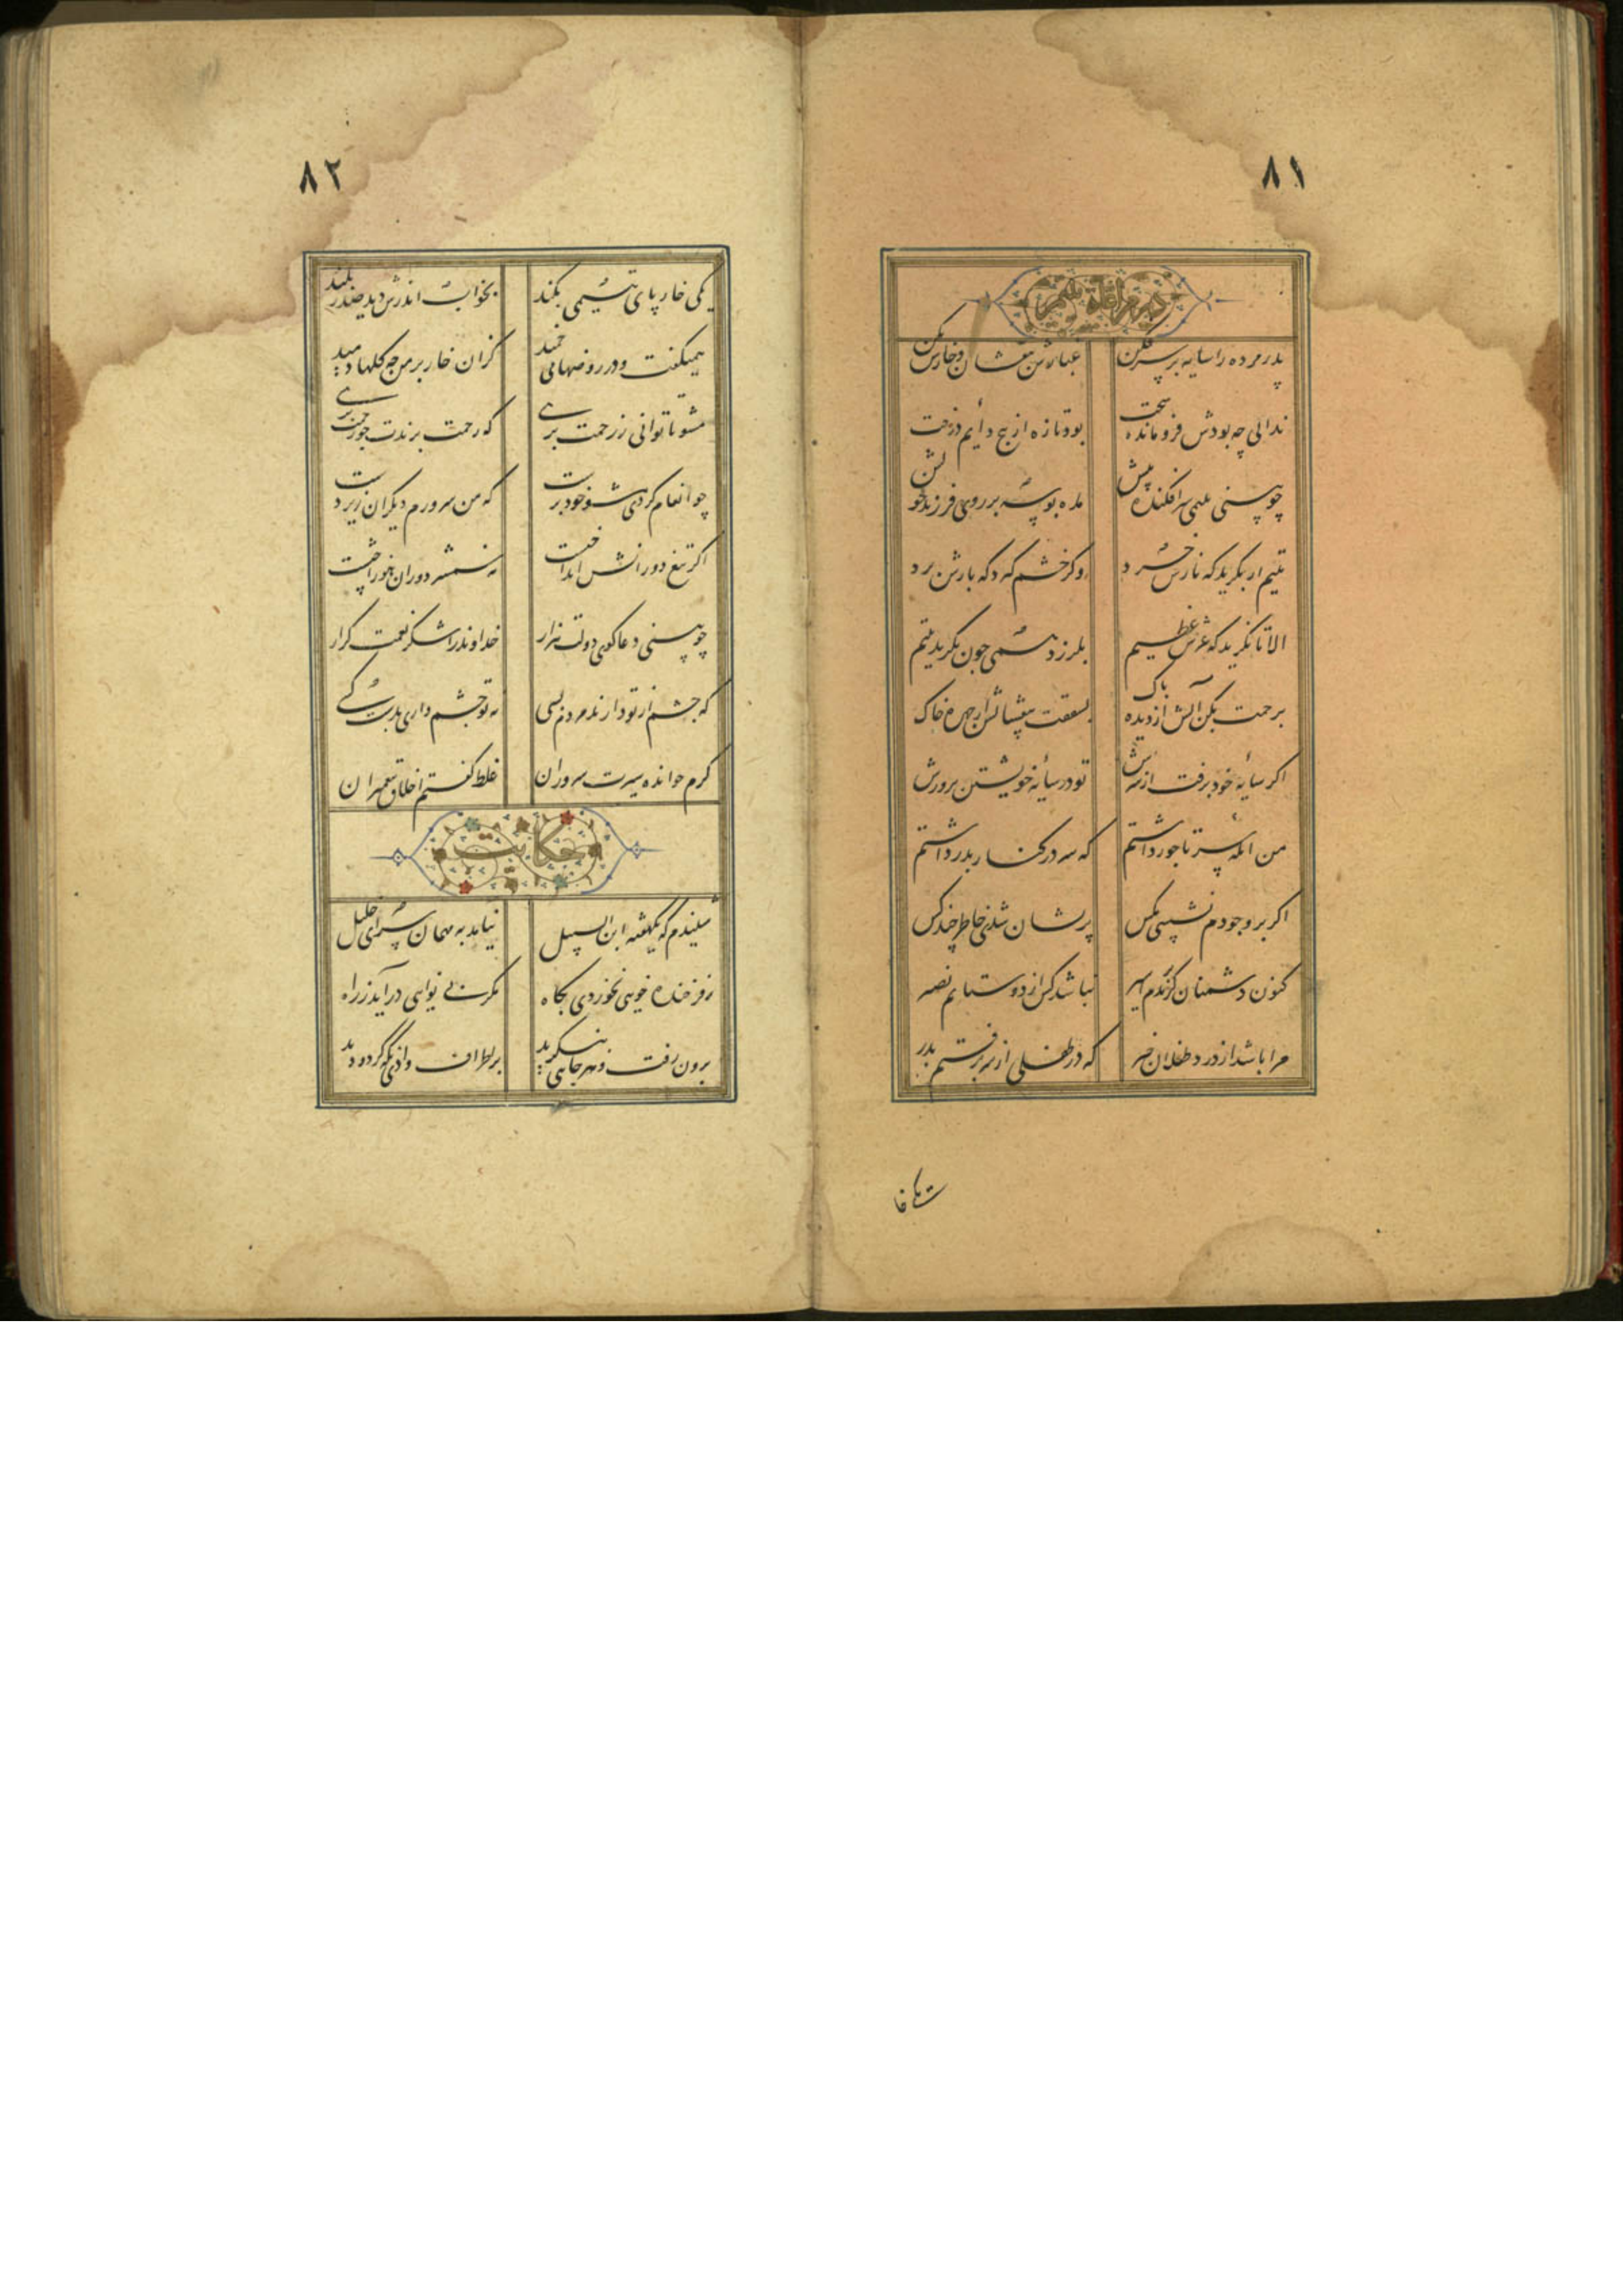 ۸۱
در مراعاة یتیم
پدر مرده را سایه بر سر فکن غبارش بیفشان و خارش بکن
ندانی چه بودش فرومانده سخت بود تازه از بیخ دایم درخت
چو بینی یتیمی سرافکنده پیش مده بوسه بر روی فرزند خویش
یتیم ار بگرید که نازش خرد وگر خشم گیرد که بارش برد
الا تا نگرید که عرش عظیم بلرزد همی چون بگرید یتیم
برحمت بکن آبش از دیده پاک بشفقت بیفشانش از چهره خاک
اگر سایه خود برفت از سرش تو در سایه خویشتن پرورش
من آنگه سر تاجور داشتم که سر در کنار پدر داشتم
اگر بر وجودم نشستی مگس پریشان شدی خاطر چند کس
کنون دشمنان گر برندم اسیر نباشد کس از دوستانم نصیر
مرا باشد از درد طفلان خبر که در طفلی از سر برفتم پدر
۸۲
یکی خار پای یتیمی بکند بخواب اندرش دید صدر خجند
همیگفت و در روضها می چمید کزان خار بر من چه گلها دمید
مشو تا توانی ز رحمت بری که رحمت برندت چو رحمت بری
چو انعام کردی مشو خود پرست که من سرورم دیگران زیردست
اگر تیغ دورانش انداخت نه شمشیر دوران هنوز آخت
چو بینی دعاگوی دولت هزار خداوند را شکر نعمت گزار
که چشم از تو دارند مردم بسی نه تو چشم داری بدست کسی
کرم خوانده سیرت سروران غلط گفتم اخلاق پیغمبران
حکایت
شنیدم که یکهفته ابن السبیل نیامد به مهمان سرای خلیل
ز فرخنده خویی نخوردی بگاه مگر بی نوایی درآید ز راه
برون رفت و هر جانبی بنگرید بر اطراف وادی نگه کرد و دید